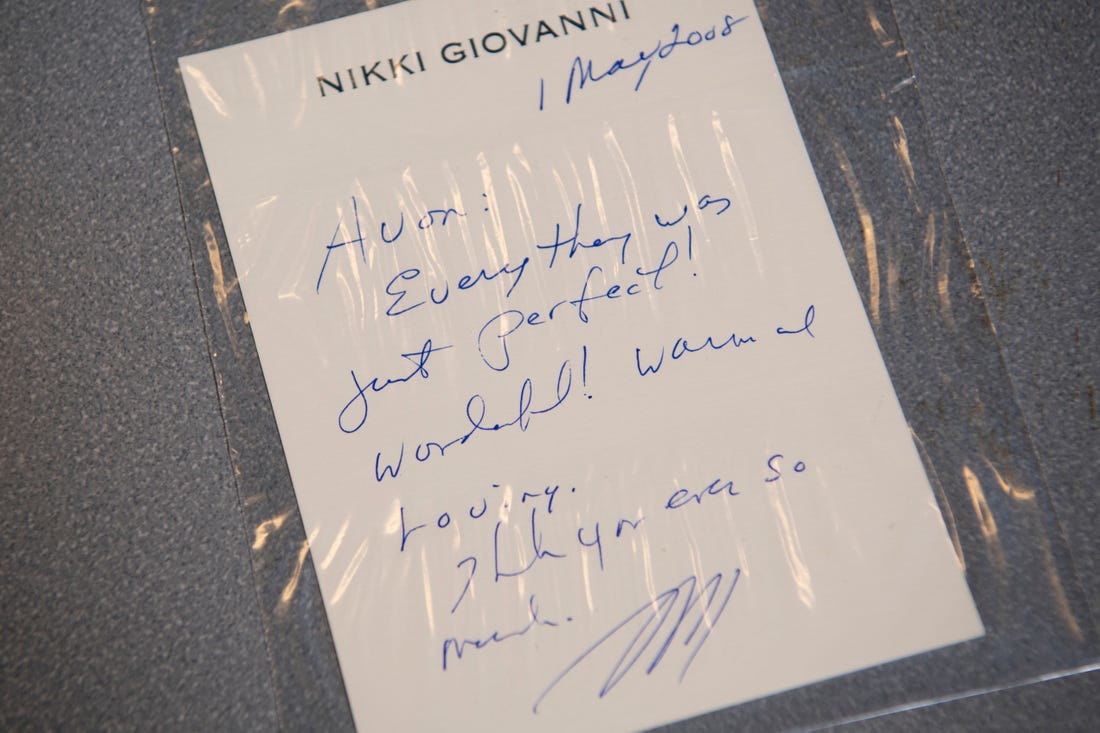 NIKKI GIOVANNI
1 May 2008
Avon:
Everything was
just perfect!
Wonderful! Warm al
Loving.
Thank you ever so
much.